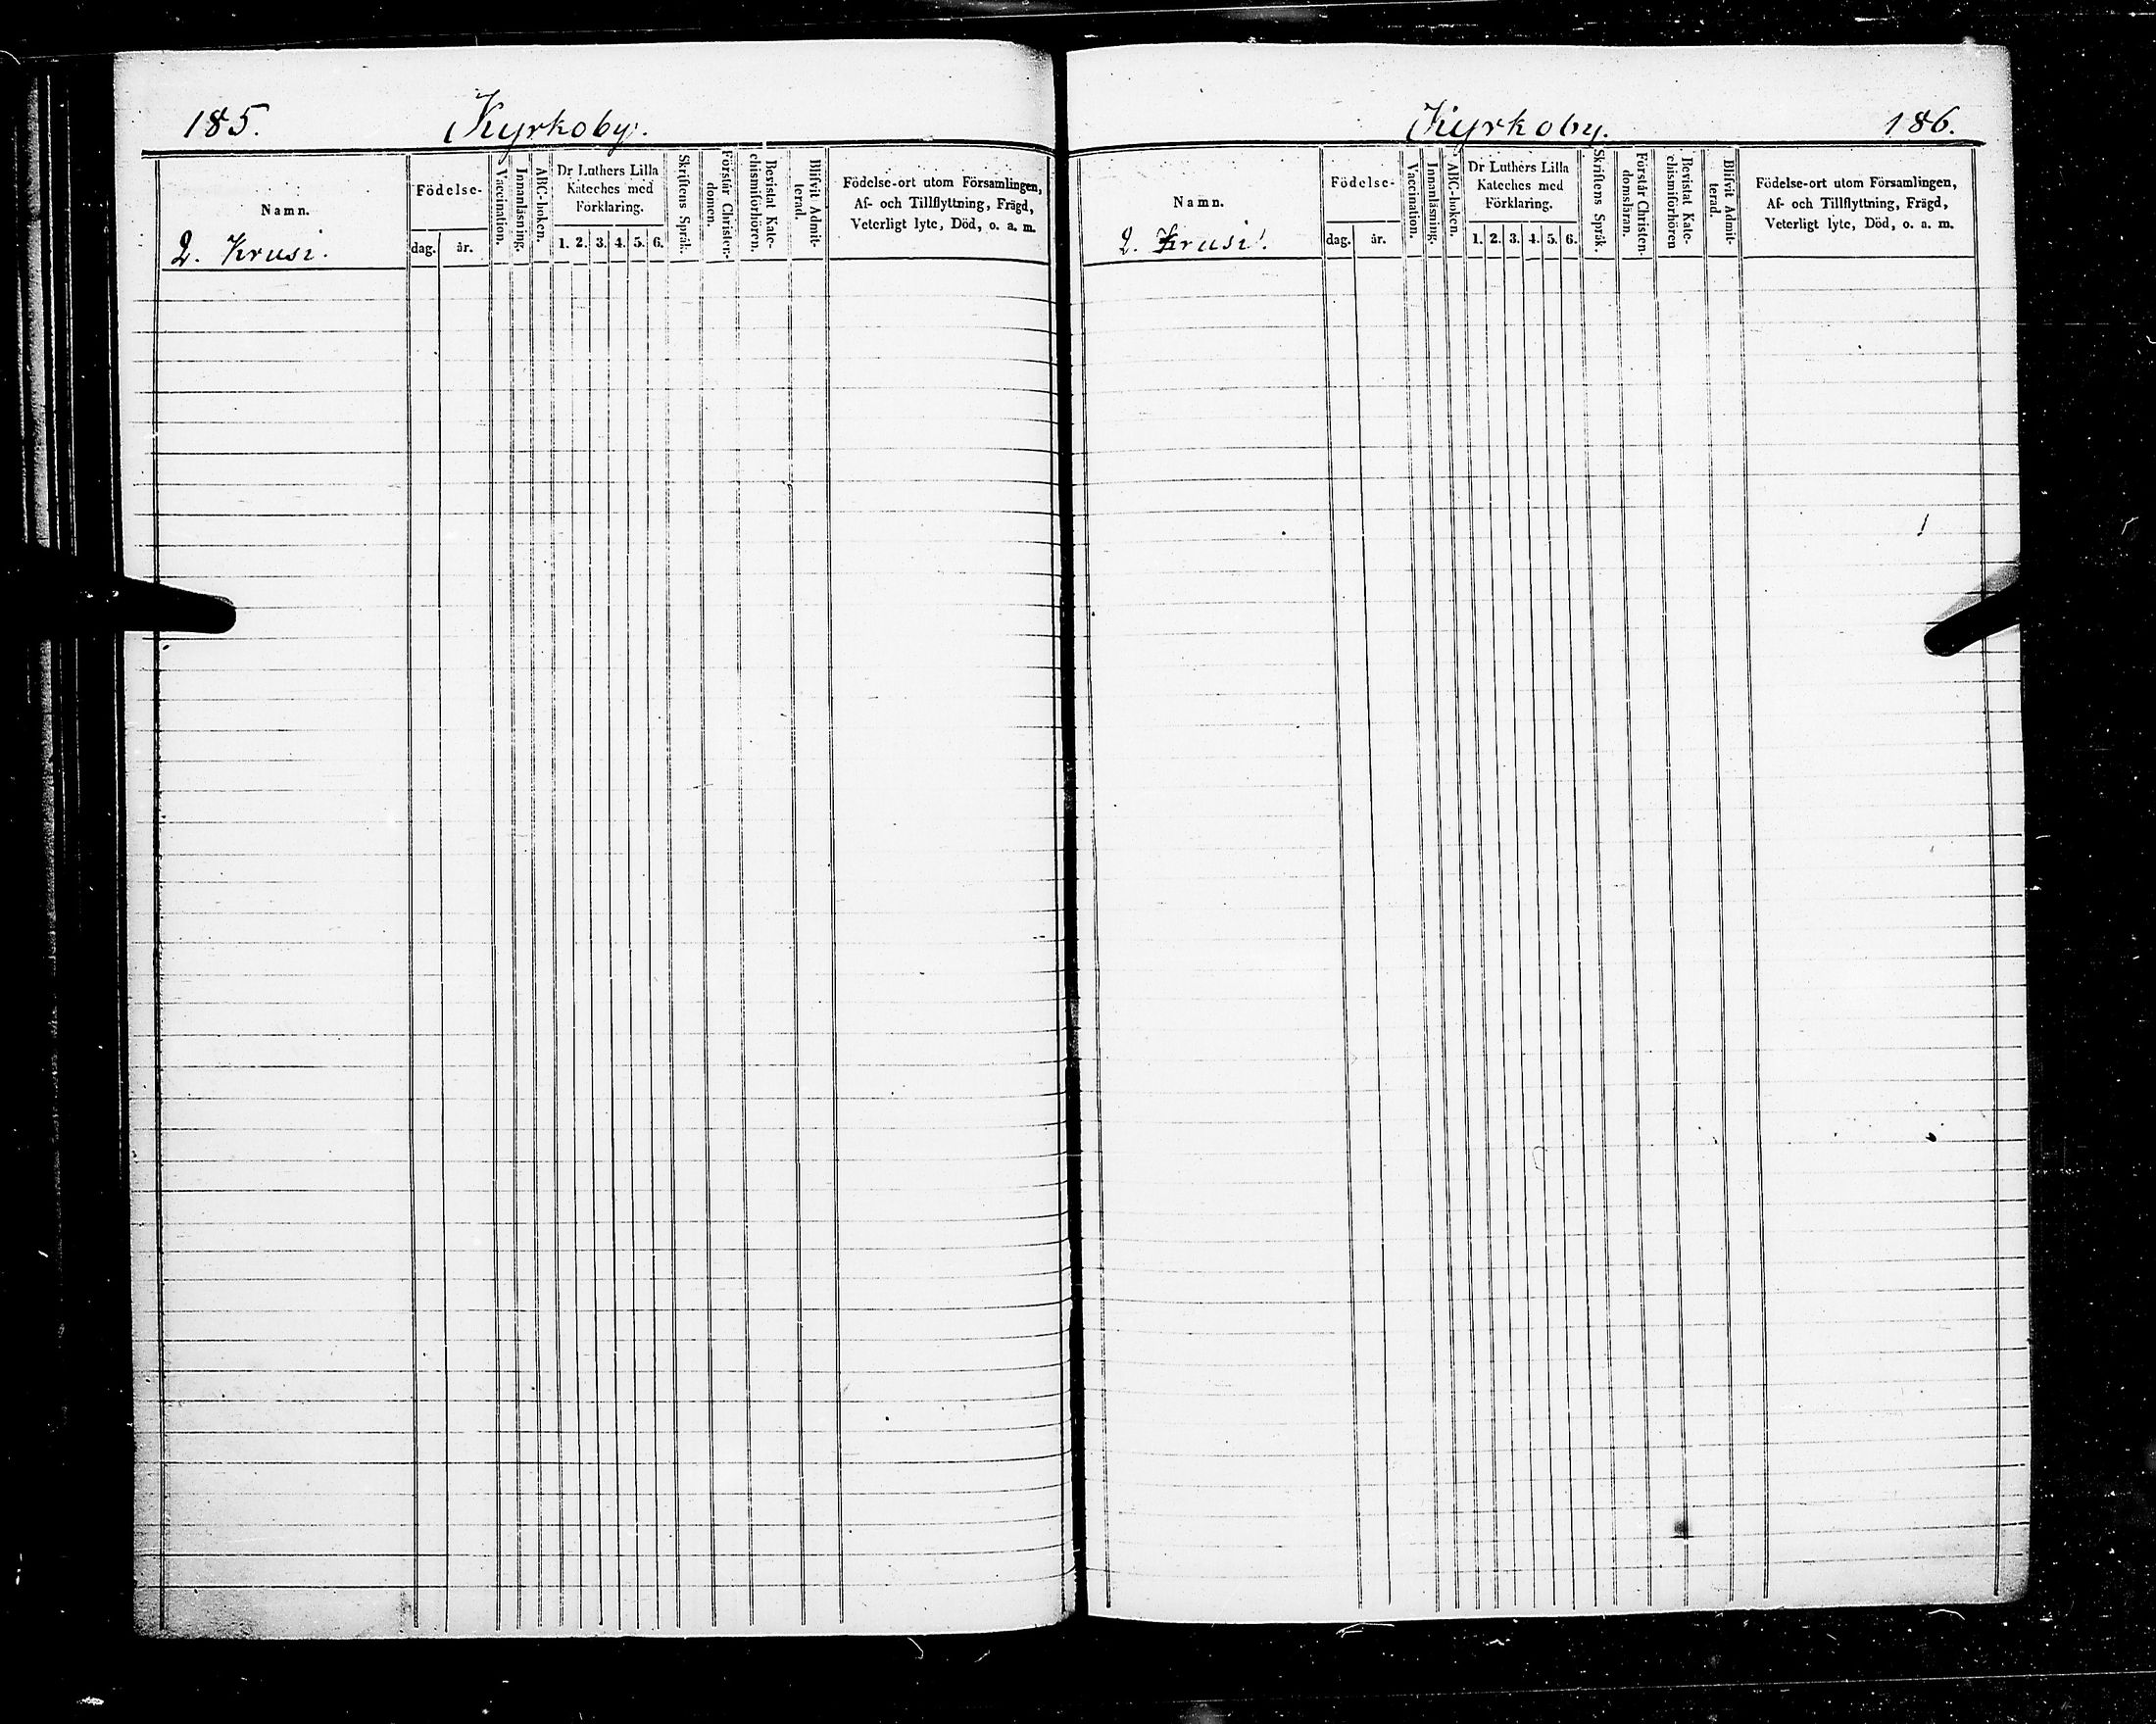 185.
Kyrkoby.
Namn.
2. Krusi.
Födelse-
dag. år.
Vaccination.
Innanläsning.
ABC-boken.
Dr Luthers Lilla
Kateches med
Förklaring.
1. 2. 3. 4. 5. 6.
Skriftens Språk.
Förstår Christen-
domen.
Bevistat Kate-
chismiförhören.
Blifvit Admit-
terad.
Födelse-ort utom Församlingen,
Af- och Tillflyttning, Frägd,
Veterligt lyte, Död, o. a. m.
Kyrkoby.
186.
Namn.
2. Krusi.
Födelse-
dag. år.
Vaccination.
Innanläsning.
ABC-boken.
Dr Luthers Lilla
Kateches med
Förklaring.
1. 2. 3. 4. 5. 6.
Skriftens Språk.
Förstår Christen-
domsläran.
Bevistat Kate-
chismiförhören
Blifvit Admit-
terad.
Födelse-ort utom Församlingen,
Af- och Tillflyttning, Frägd,
Veterligt lyte, Död, o. a. m.